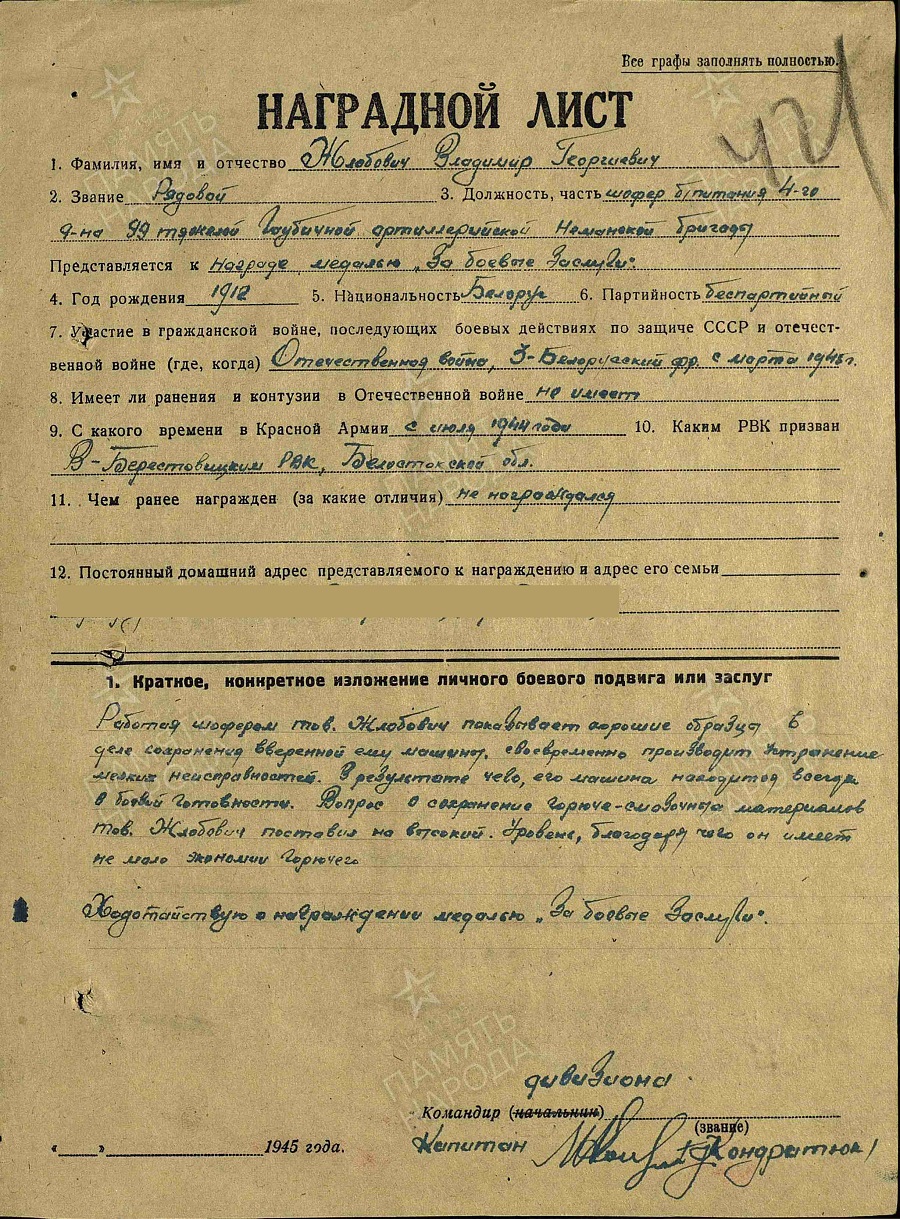 Все графы заполнять полностью.
421
НАГРАДНОЙ ЛИСТ
1. Фамилия, имя и отчество Жлобович Владимир Георгиевич
2. Звание Рядовой 3. Должность, часть шофер б/питания 4-го
д-на 99 тяжелой Гаубичной артиллерийской Неманской бригады
Представляется к награде медалью „За боевые Заслуги".
4. Год рождения 1912 5. Национальность Белорус 6. Партийность беспартийный
7. Участие в гражданской войне, последующих боевых действиях по защиче СССР и отечест-
венной войне (где, когда) Отечественная война, 3-Белорусский фр. с марта 1945г.
8. Имеет ли ранения и контузии в Отечественной войне не имеет
9. С какого времени в Красной Армии с июля 1944 года 10. Каким РВК призван
В-Берестовицким РВК, Белостокской обл.
11. Чем ранее награжден (за какие отличия) не награждался
12. Постоянный домашний адрес представляемого к награждению и адрес его семьи
1. Краткое, конкретное изложение личного боевого подвига или заслуг
Работая шофером тов. Жлобович показывает хорошие образцы в
деле сохранения вверенной ему машины, своевременно производит устранение
мелких неисправностей. В результате чево, его машина находится всегда
в боевой готовности. Вопрос о сохранение горюче-смазочных материалов
тов. Жлобович поставил на высокий. Уровень, благодаря чего он имеет
не мало экономии Горючего
Ходотайствую о награждении медалью „За боевые Заслуги".
дивизиона
Командир (начальник)
(звание)
« » 1945 года.
Капитан /Кондратюк/
ПАМЯТЬ
НАРОДА